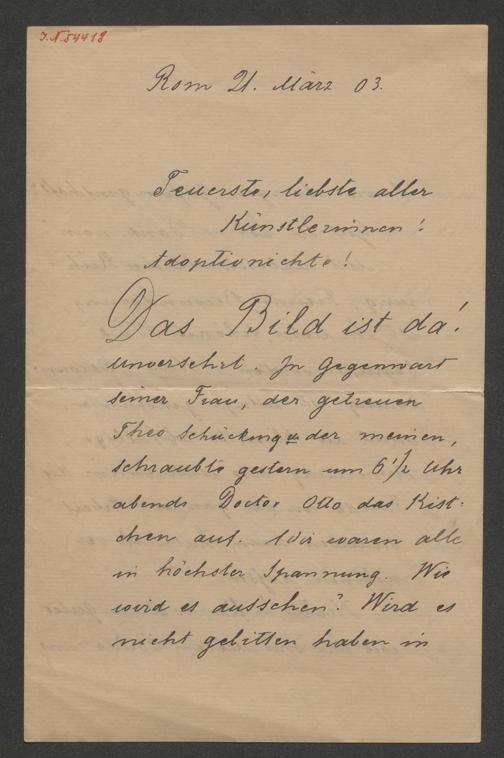 J.N 54418
Rom 21. März 03.
Teuerste, liebste aller
Künstlerinnen!
Adoptionichte!
Das Bild ist da!
unversehrt. In Gegenwart
seiner Frau, der getreuen
Theo Schücking u der meinen,
schraubte gestern um 6 1/2 Uhr
abends Doctor Otto das Kist-
chen auf. Wir waren alle
in höchster Spannung. Wie
wird es aussehen? Wird es
nicht gelitten haben in